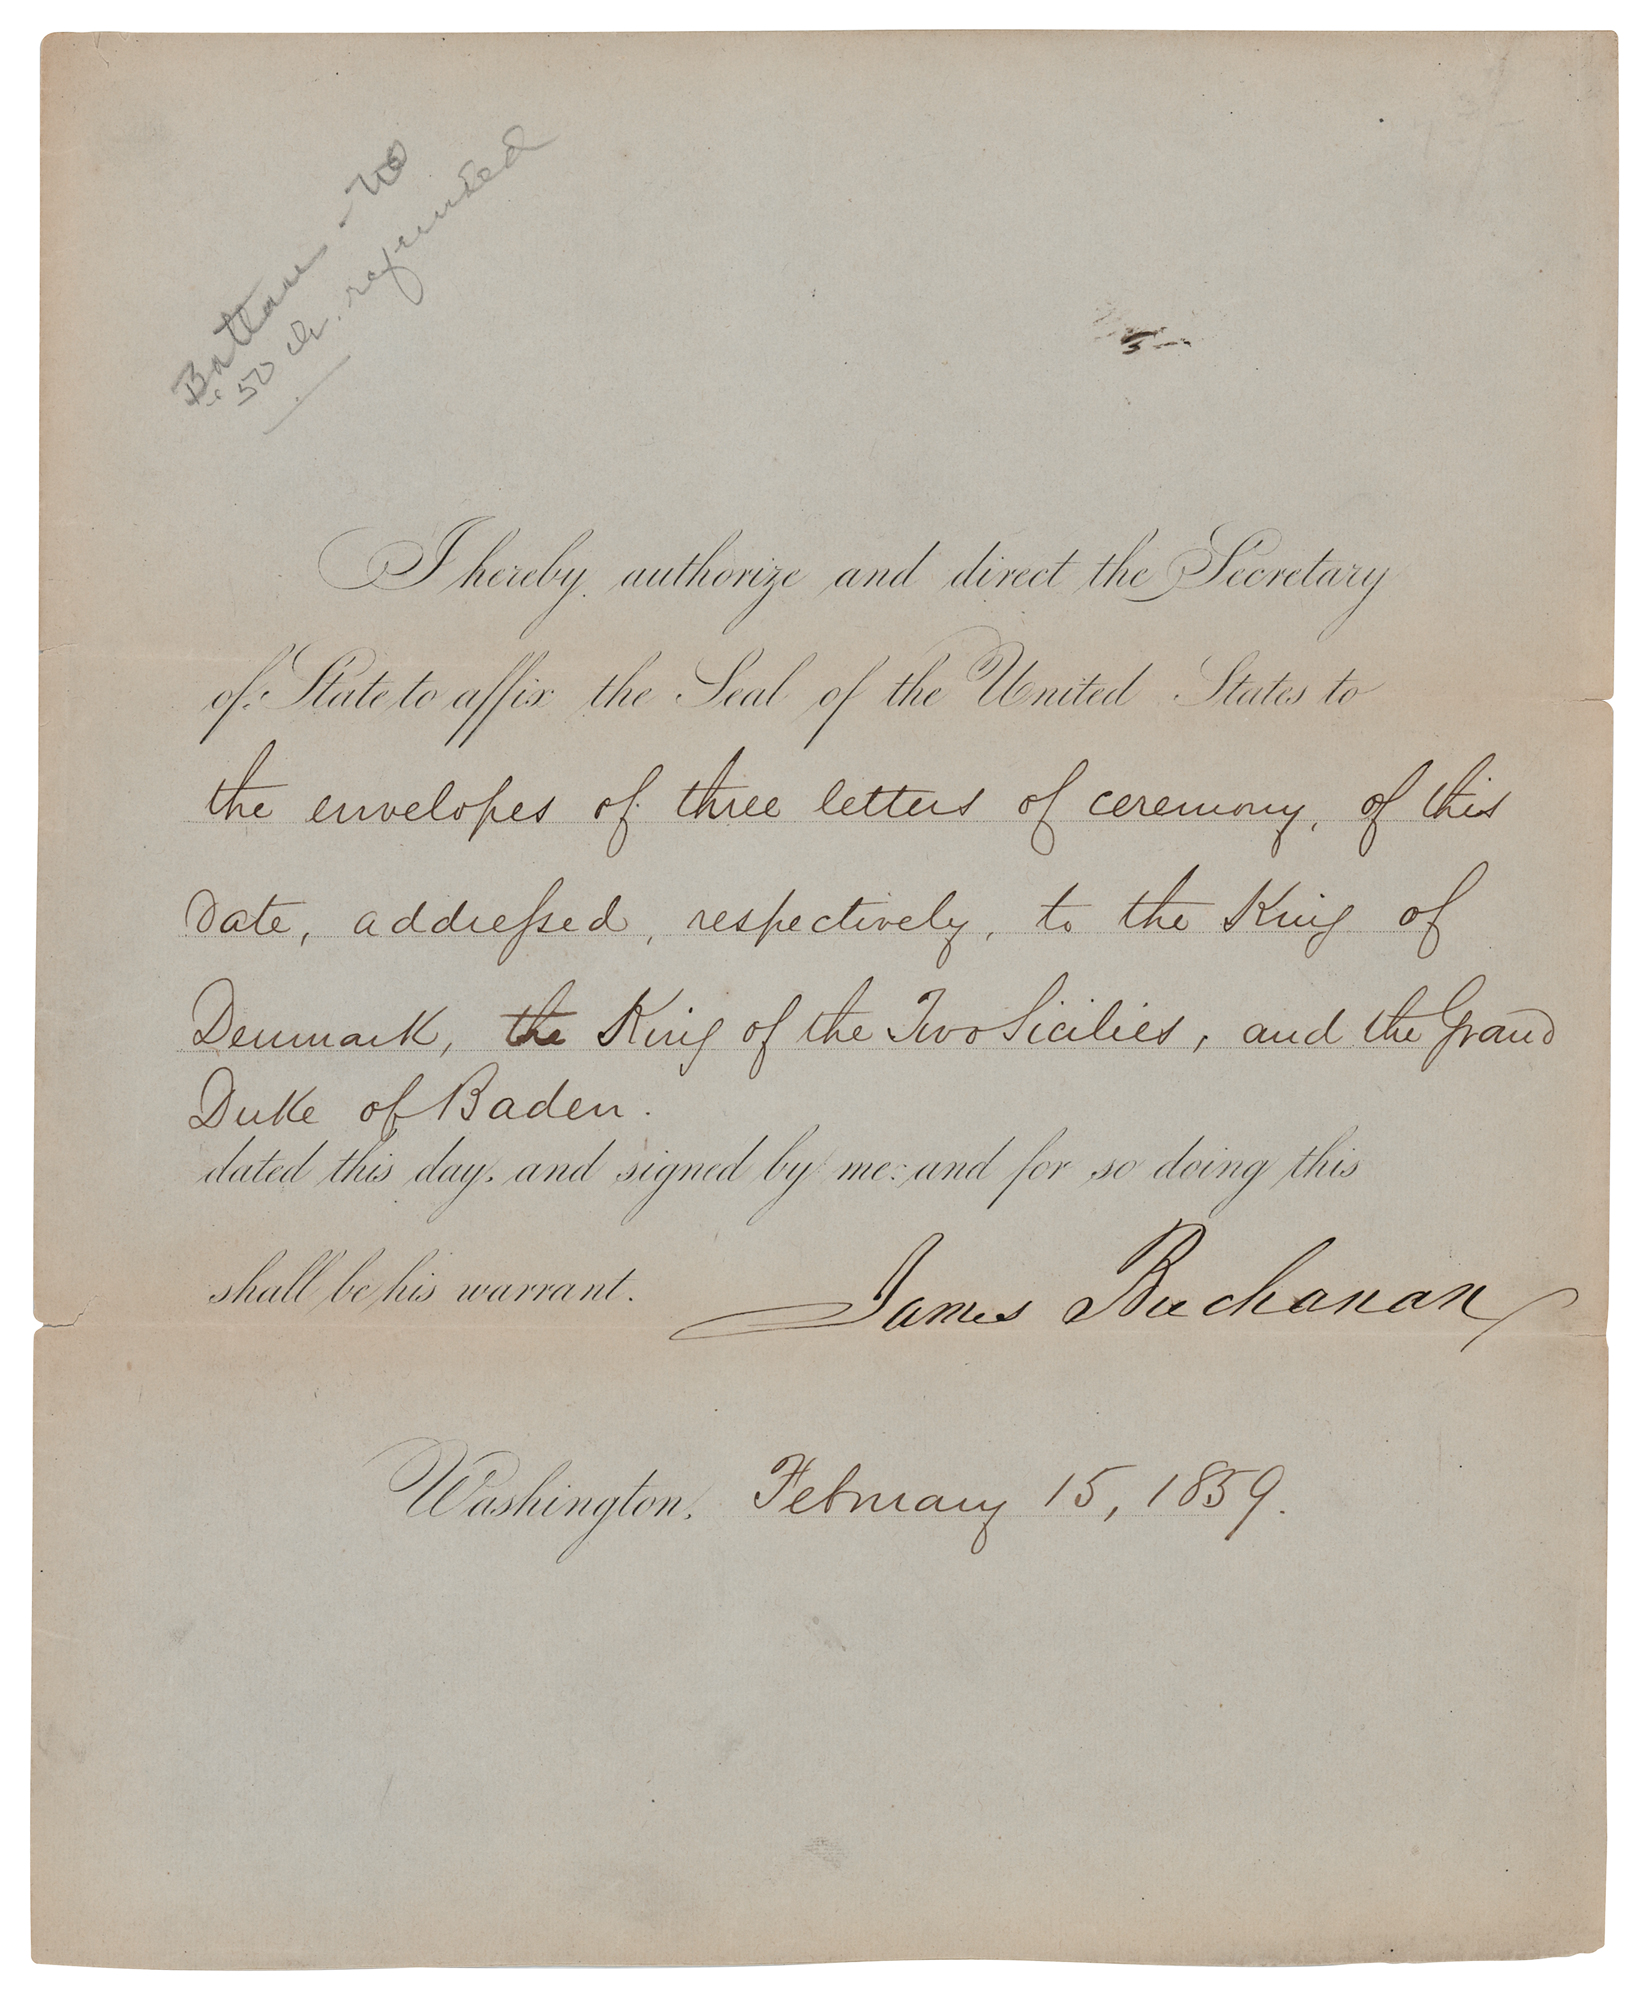 50 refunded
I hereby authorize and direct the Secretary
of State to affix the Seal of the United States to
the envelopes of three letters of ceremony, of this
date, addressed, respectively, to the King of
Denmark, the King of the Two Sicilies, and the Grand
Duke of Baden.
dated this day, and signed by me: and for so doing this
shall be his warrant.
James Buchanan
Washington, February 15, 1859.